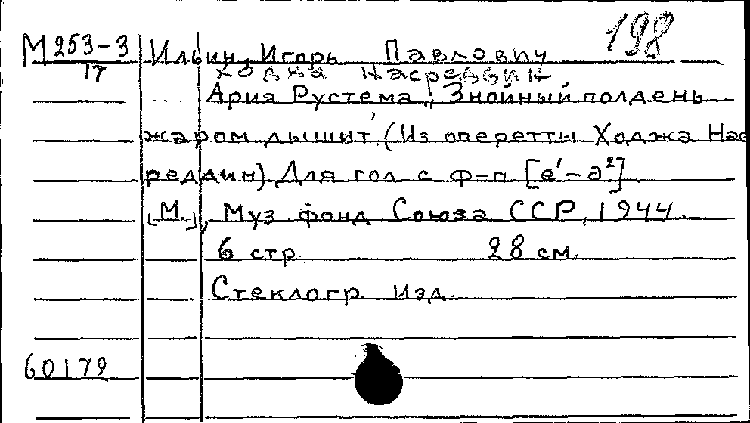 198
М 253-3 Ильин, Игорь Павлович
17 Ходжа Насреддин
Ария Рустема „Знойный полдень
жаром дышит" (Из оперетты Ходжа Нас
реддин). Для гол с ф-п [е¹-а²]
[М.], Муз фонд Союза ССР, 1944.
6 стр 28 см.
Стеклогр. изд.
60179